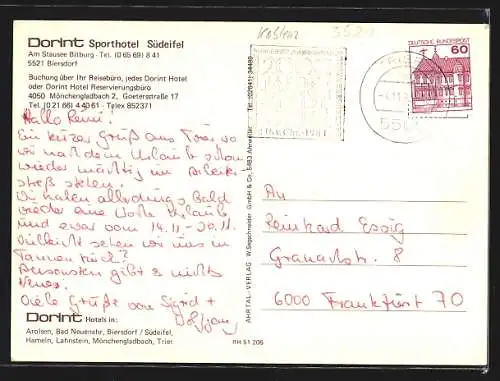 Dorint Sporthotel Südeifel
Am Stausee Bitburg · Tel. (0 65 69) 8 41
5521 Biersdorf
Buchung über Ihr Reisebüro, jedes Dorint Hotel
oder Dorint Hotel Reservierungsbüro
4050 Mönchengladbach 2, Goetersstraße 17
Tel. (0 21 66) 4 40 61 · Telex 852371
Hallo
Ein kurzer Gruß aus Trier wo
wir nach dem Urlaub schon
wieder mächtig im Arbeits-
streß stehen.
Wir haben allerdings bald
wieder eine Woche Urlaub
und zwar vom 14.11.-20.11.
Vielleicht sehen wir uns in
Ansonsten gibt es nichts
Neues.
Viele Grüße von Sigrid +
Wolfgang
Dorint Hotels in:
Arolsen, Bad Neuenahr, Biersdorf / Südeifel,
Hameln, Lahnstein, Mönchengladbach, Trier
RH 51 206
AHRTAL-VERLAG W. Segschneider GmbH & Co. 5483 Ahrweiler · Tel. (02641) 34488
Koblenz
DEUTSCHE BUNDESPOST
60
An
Reinhard Essig
Granachstr. 8
6000 Frankfurt 70